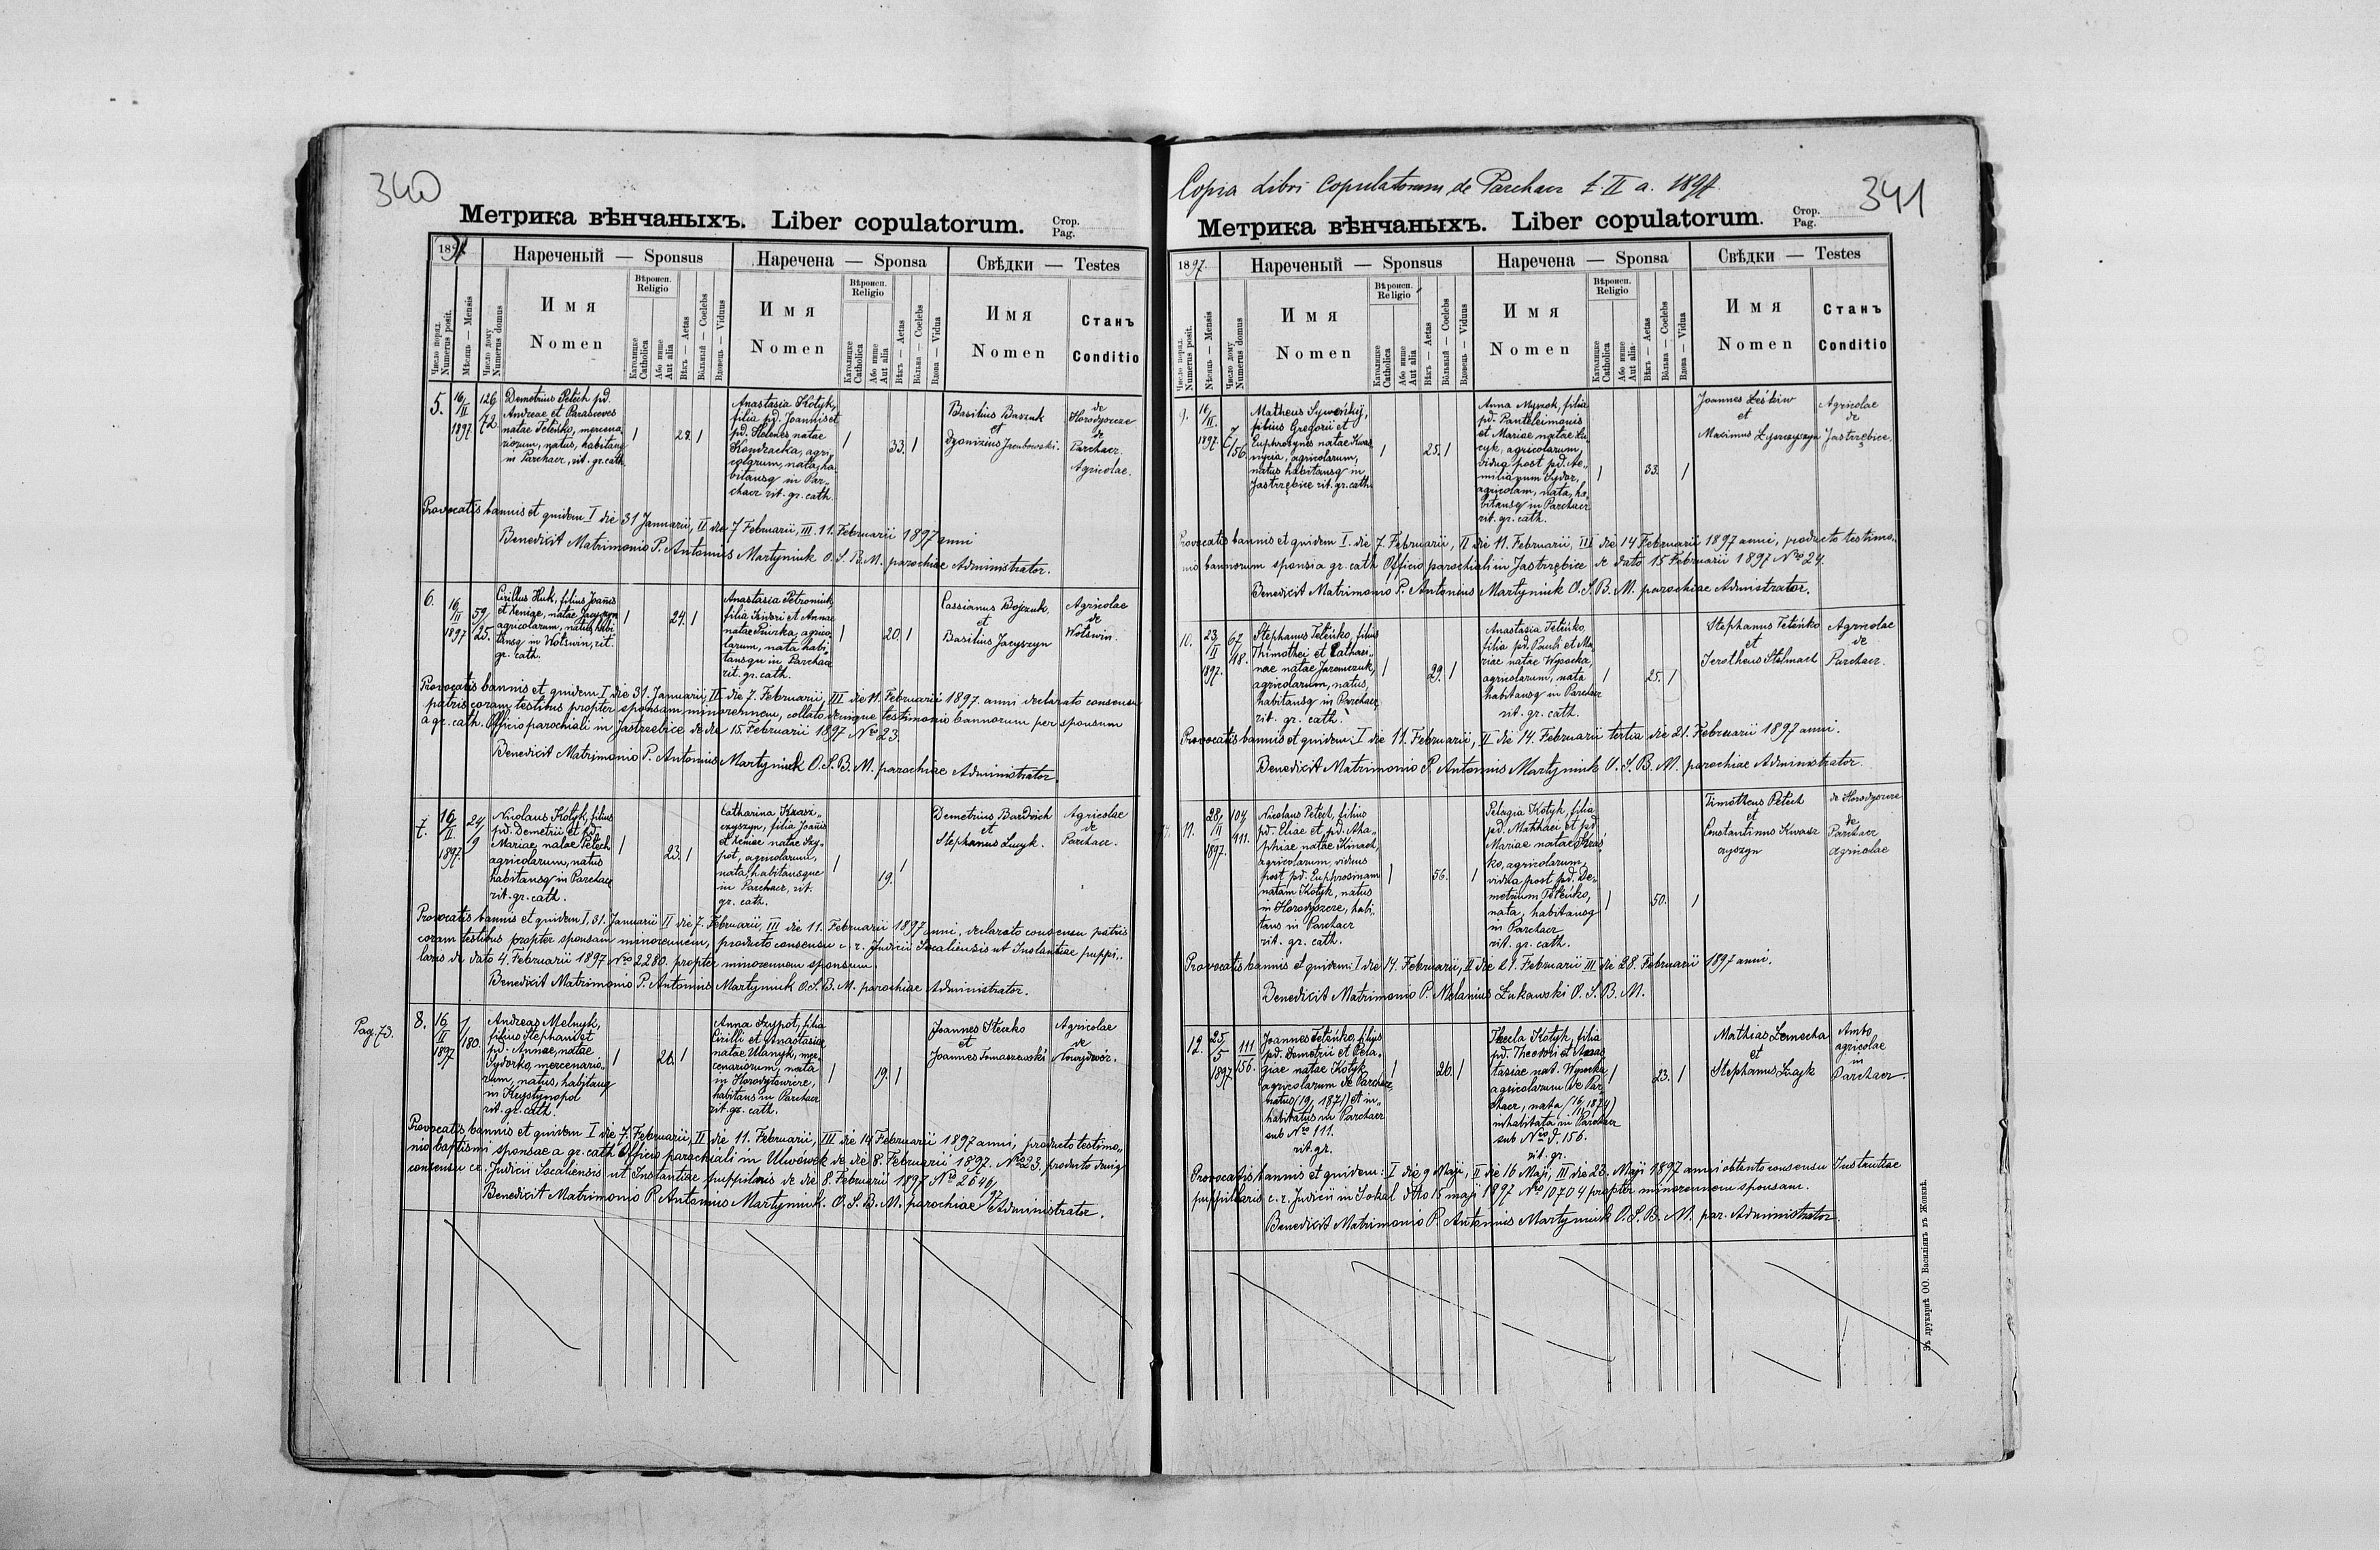 340
Метрика вѣнчаныхъ. Liber copulatorum. Стор. Pag.
1897
Нареченый — Sponsus
Наречена — Sponsa
Свѣдки — Testes
Число поряд. Numerus posit.
Мѣсяць — Mensis
Число дому Numerus domus
Имя
Nomen
Вѣроисп. Religio
Католицке Catholica
Або инше Aut alia
Вѣкъ — Aetas
Вôльный — Coelebs
Вдовець — Viduus
Имя
Nomen
Вѣроисп. Religio
Католицке Catholica
Або инше Aut alia
Вѣкъ — Aetas
Вôльна — Coelebs
Вдова — Vidua
Имя
Nomen
Станъ
Conditio
5.
16/II 1897
126/72
Demetrius Petech pd.
Andreae et Parasceves
natae Teteńko, mercena-
riorum, natus, habitansq
in Parchacz, rit. gr. cath.
1 28. 1
Anastasia Kotyk,
filia pd. Joannis et
pd. Helenes natae
Kondracka, agri-
colarum, nata, ha-
bitansq in Par-
chacz rit. gr. cath.
1 33. 1
Basilius Baszuk
et
Dyonizius Jacubowski.
de
Horodyszcze
de
Parchacz.
Agricolae.
Provocatis bannis et quidem I die 31 Januarii, II die 7 Februarii, III. 11. Februarii 1897 anni
Benedixit Matrimonio P. Antonius Martyniuk O. S. B. M. parochiae Administrator.
6.
16/II 1897
59/25.
Cirillus Huk, filius Joañis
et Xeniae, natae Jacyszyn
agricolarum, natus, habi-
tansq in Wolswin, rit.
gr. cath.
1 24. 1
Anastasia Petroniuk,
filia et Annae
natae agrico-
larum, nata habi-
tansqu in Parchacz
rit. gr. cath.
1 20. 1
Cassianus Bojzuk,
et
Basilius Jacyszyn
Agricolae
de
Wolswin.
Provocatis bannis et quidem I die 31. Januarii, II die 7. Februarii, III die 11. Februarii 1897. anni declarato consensu
patris coram testibus propter sponsam minorennem, collato denique testimonio bannorum per sponsum
a gr. cath. Officio parochiali in Jastrzebice de die 15. Februarii 1897 Nro 23.
Benedixit Matrimonio P. Antonius Martyniuk O. S. B. M. parochiae Administrator.
7.
16/II. 1897.
24/9
Nicolaus Kotyk, filius
pd. Demetrii et pd.
Mariae, natae Petech
agricolarum, natus
habitansq in Parchacz
rit. gr. cath.
1 23. 1
Catharina Kwasz-
czyszyn, filia Joañis
et Xeniae natae Szy-
pot, agricolarum,
nata, habitansque
in Parchacz, rit.
gr. cath.
1 19. 1
Demetrius Bardóch
et
Stephanus Lucyk.
Agricolae
de
Parchacz.
Provocatis bannis et quidem I, 31. Januarii II die 7. Februarii, III die 11. Februarii 1897 anni, declarato consensu patris
coram testibus propter sponsam minorennem, producto consensu c. r. Judicii Socaliensis ut Instantiae puppi-
laris de dato 4. Februarii 1897 Nro 2280. propter minorennem sponsum.
Benedixit Matrimonio P. Antonius Martyniuk O. S. B. M. parochiae Administrator.
Pag. 73.
8.
16/II 1897
1/180.
Andreas Melnyk,
filius Stephani et
pd. Annae, natae
Sydorko, mercenario-
rum, natus, habitansq
in Krystynopol
rit. gr. cath.
1 26. 1
Anna Szypot, filia
Cirilli et Anastasiae
natae Ulanyk, mer-
cenariorum, nata
in
habitans in Parchacz
rit. gr. cath.
1 19. 1
Joannes Steczko
et
Joannes Tomaszewski
Agricolae
de
Nowydwór.
Provocatis bannis et quidem I die 7. Februarii, II die 11. Februarii, III die 14 Februarii 1897 anni, producto testimo-
nio baptismi sponsae a gr. cath Officio parochiali in Ulwówek de die 8. Februarii 1897. Nro 23, producto deniq
consensu cr. Judicii Socaliensis ut Instantiae puppilaris de die 8. Februarii 1897 Nro 2646/97
Benedixit Matrimonio P. Antonius Martyniuk. O. S. B. M. parochiae Administrator.
Copia Libri Copulatorum de Parchacz t. II a. 1897.
341
Метрика вѣнчаныхъ. Liber copulatorum. Стор. Pag.
1897.
Нареченый — Sponsus
Наречена — Sponsa
Свѣдки — Testes
Число поряд. Numerus posit.
Мѣсяць — Mensis
Число дому Numerus domus
Имя
Nomen
Вѣроисп. Religio
Католицке Catholica
Або инше Aut alia
Вѣкъ — Aetas
Вôльный — Coelebs
Вдовець — Viduus
Имя
Nomen
Вѣроисп. Religio
Католицке Catholica
Або инше Aut alia
Вѣкъ — Aetas
Вôльна — Coelebs
Вдова — Vidua
Имя
Nomen
Станъ
Conditio
9.
16/II. 1897.
7/156
Matheus Syweńkij,
filius Gregorii et
Euphrosynes natae
agricolarum,
natus habitansq in
Jastrzębice rit. gr. cath.
1 25. 1
Anna Myszok, filia
pd. Panteleimonis
et Mariae natae Lu-
cyk, agricolarum,
vidua post pd. Ae-
milianum Sydor,
agricolam, nata, ha-
bitansq in Parchacz
rit. gr. cath.
1 33. 1
Joannes Leśkiw
et
Maximus
Agricolae
de
Jastrzębice.
Provocatis bannis et quidem I. die 7. Februarii, II die 11. Februarii, III die 14 Februarii 1897 anni, producto testimo-
nio bannorum sponsi a gr. cath Officio parochiali in Jastrzębice de dato 15 Februarii 1897 Nro 24.
Benedixit Matrimonio P. Antonius Martyniuk O. S. B. M. parochiae Administrator.
10.
23/II 1897.
67/48.
Stephanus Teteńko, filius
Thimothei et Cathari-
nae natae Jaremczuk,
agricolarum, natus,
habitansq in Parchacz,
rit. gr. cath.
1 29. 1
Anastasia Teteńko,
filia pd. Pauli et Ma-
riae natae Wysocka,
agricolarum, nata
habitansq in Parchacz
rit. gr. cath.
1 25. 1
Stephanus Teteńko
et
Jerotheus Stelmach
Agricolae
de
Parchacz.
Provocatis bannis et quidem: I die 11. Februarii, II die 14. Februarii tertia die 21. Februarii 1897 anni.
Benedixit Matrimonio P. Antonius Martyniuk O. S. B. M. parochiae Administrator.
11.
28/II 1897.
104/111.
Nicolaus Petech, filius
pd. Eliae et pd. Aha-
phiae natae Kinach,
agricolarum, viduus
post pd. Euphrosinam
natam Kotyk, natus
in Horodyszcze, habi-
tans in Parchacz
rit. gr. cath.
1 56. 1
Pelagia Kotyk, filia
pd. Matthaei et pd
Mariae natae
agricolarum,
vidua post pd. De-
metrium Teteńko,
nata, habitansq
in Parchacz
rit. gr. cath.
1 50. 1
Timotheus Petech
et
Constantinus Kwasz
czyszyn
de Horodyszcze
de
Parchacz
agricolae
Provocatis bannis et quidem: I die 14. Februarii, II die 21. Februarii III die 28. Februarii 1897 anni.
Benedixit Matrimonio P. Melanius Łukawski O. S. B. M.
12.
25/5 1897
111/156.
Joannes Teteńko, filius
pd. Demetrii et Pela-
giae natae Kotyk
agricolarum de Parchacz,
natus (19/1 1871) et in-
habitatus in Parchacz
sub Nro 111.
rit. gr.
1 26. 1
Thecla Kotyk, filia
pd. Theodori et Anas
tasiae nat. Wysocka
agricolarum de Par
chacz, nata (16/11 1874)
inhabitata in Parchacz
sub Nro d. 156.
rit. gr.
1 23. 1
Mathias Zomecha
et
Stephanus Lucyk
Ambo
agricolae
in
Parchacz.
Provocatis bannis et quidem: I die 9 Maji, II die 16 Maji, III die 23. Maji 1897 anni obtento consensu Instantiae
puppillaris c. r. Judicii in Sokal ddto 15 maji 1897 Nro 10704 propter minorennem sponsam.
Benedixit Matrimonio P. Antonius Martyniuk O. S. B. M. par. Administrator.
Зъ друкарнѣ ОО. Василіянъ въ Жовквѣ.